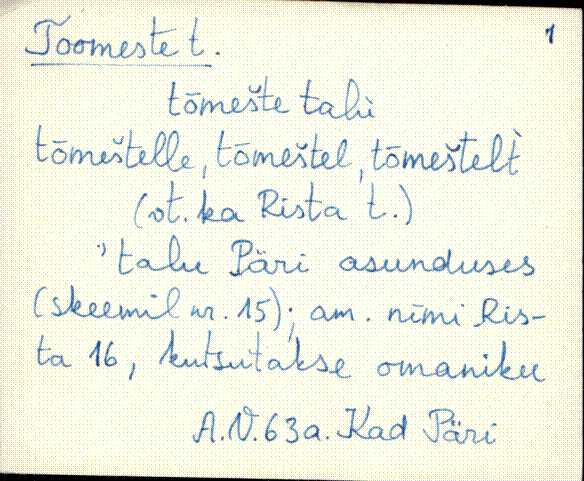 Toomeste t. 1
tōmešte talù
tōmeštelle, tōmeštel, tōmeštelt̀
(vt. ka Rista t.)
') talu Päri asunduses
(skeemil nr. 15); am. nīmi Ris-
ta 16, kutsutakse omaniku
A.V. 63a. Kad Päri